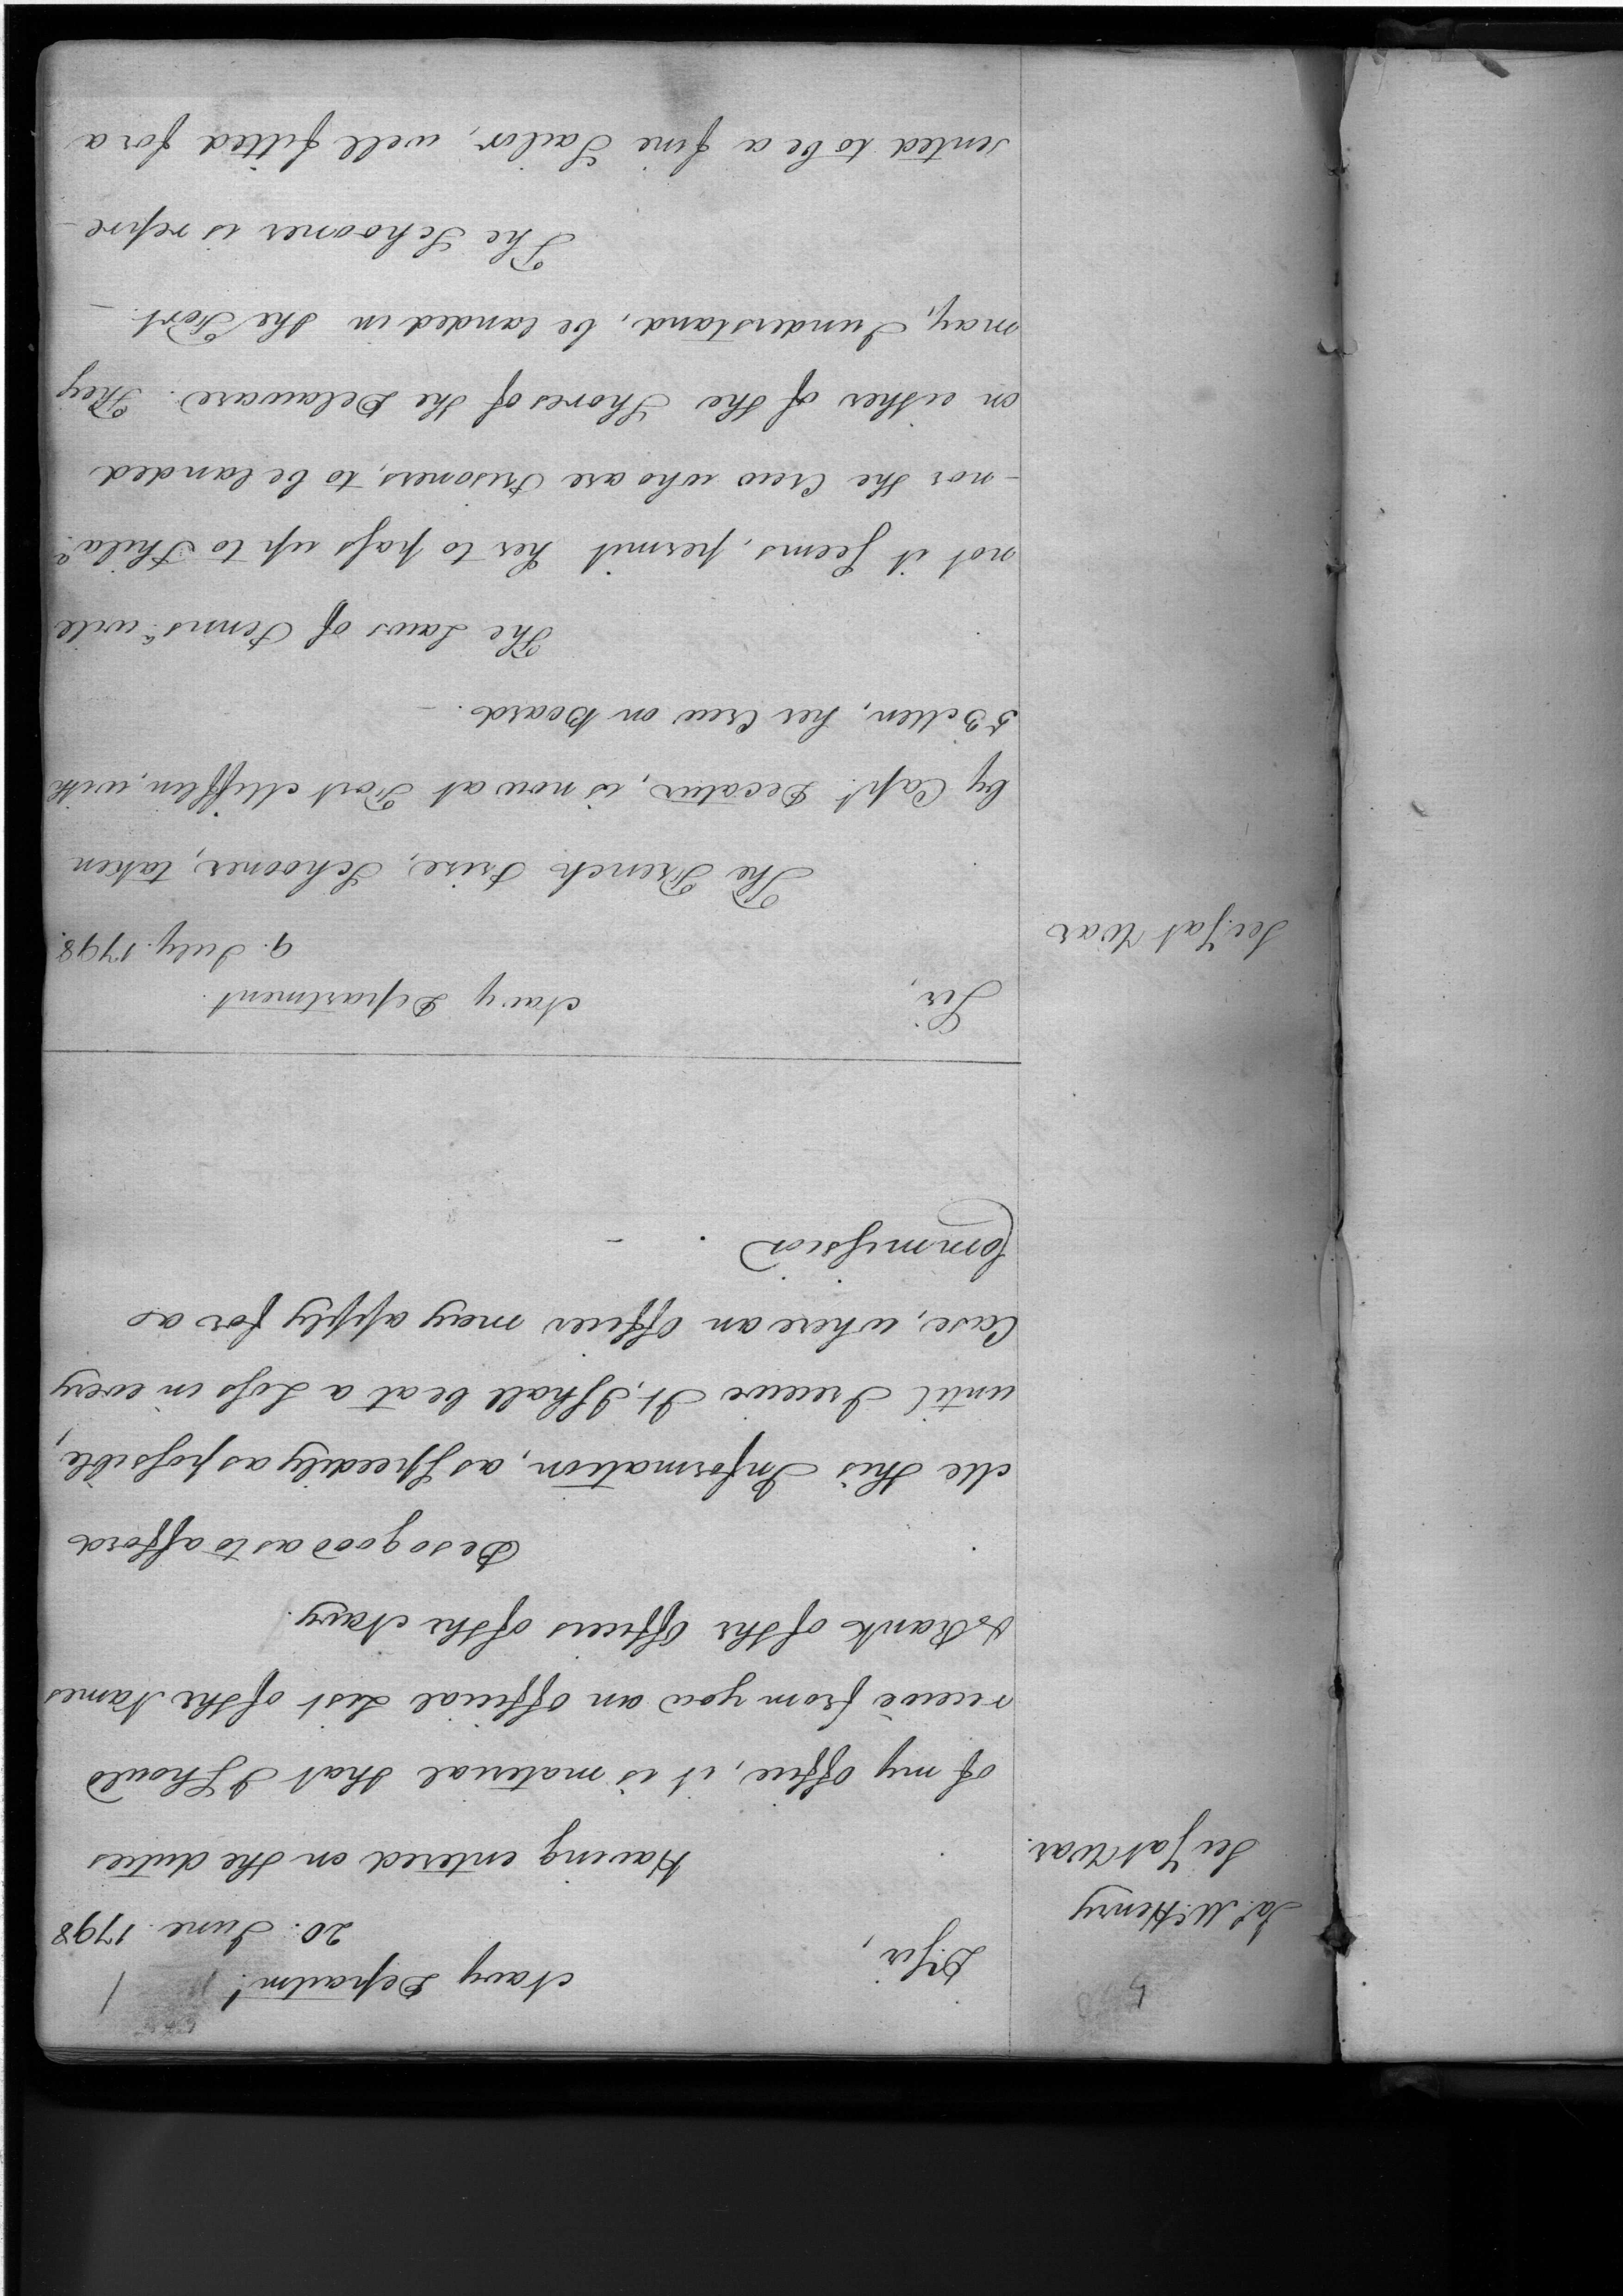 4
Jas. McHenry
Secy at War.
D. Sir,
Navy Departmt.
20. June. 1798
Having entered on the duties
of my office, it is material that I should
receive from you an official List of the Names
& Rank of the Officers of the Navy.
Be so good as to afford
Me this Information, as speedily as possible,
until I receive It, I shall be at a Loss in every
Case, where an Officer may apply for a
Commission
Secy at War
Sir,
Navy Department.
9. July. 1798.
The French Prize, Schooner, taken
by Capt. Decatur, is now at Fort Mifflin, with
53 Men, her Crew on Board.
The Laws of Pennsa. will
not it seems, permit her to pass up to Phila.
- nor the Crew who are Prisoners, to be landed
on either of the Shores of the Delaware. They
may, I understand, be landed in the Fort. -
The Schooner is repre-
sented to be a fine Sailor, well fitted for a